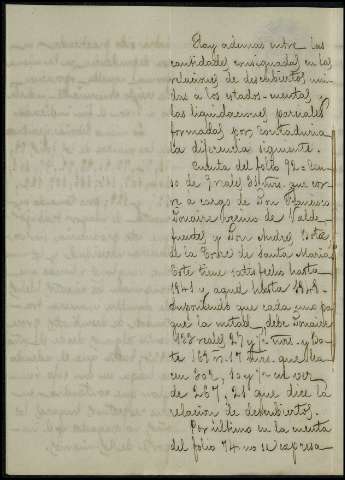 Hay ademas entre las
cantidades consignadas en las
relaciones de descubiertos uni-
das a los estados-cuentas y
las liquidaciones parciales
formadas por contaduria
la diferencia siguiente.
Cuenta del folio 92 = Cen-
so de 7 reales 33 mrs. que cor-
re a cargo de Don Francisco
vecino de Valde-
fuentes y Don Andrés
de la Torre de Santa Maria
Este tiene satisfecho hasta
1841 y aquel hasta
Suponiendo que cada uno pa-
que la mitad, debe
133 reales 27 y mrs. y
te 169 17 mrs. que ha-
cen 303, 10 y en vez
de 267, 21 que dice la
relacion de descubiertos.
Por último en la cuenta
del folio 74 no se expresa